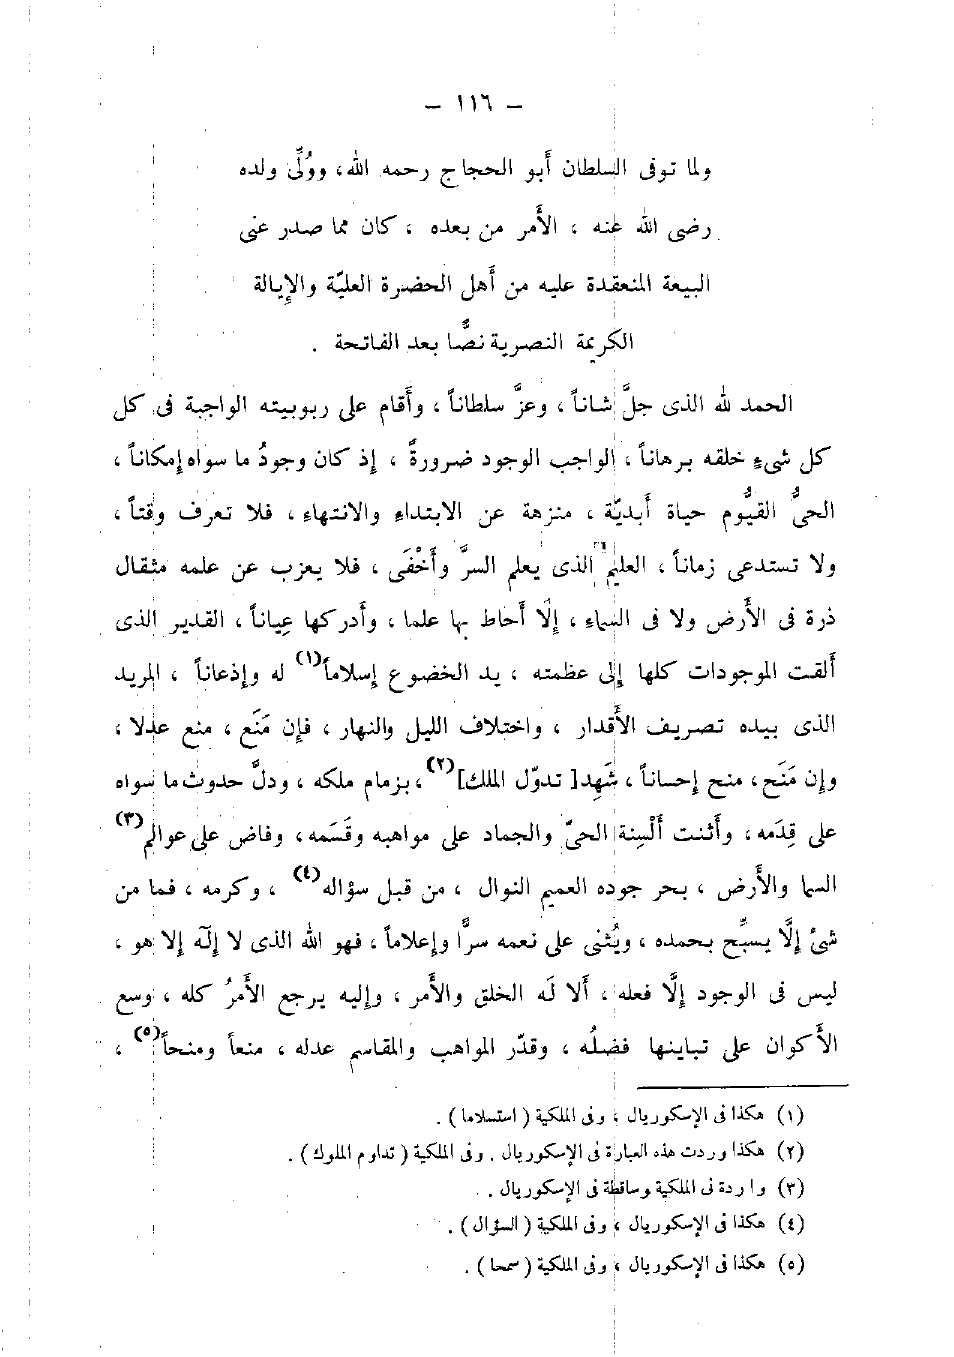 — ١١٦ —
ولما توفى السلطان أبو الحجاج رحمه الله، ووُلِّى ولده
رضى الله عنه ، الأَمر من بعده ، كان مما صدر عنى
البيعة المنعقدة عليه من أَهل الحضرة العليّة والإِيالة
الكريمة النصرية نصًّا بعد الفاتحة .
الحمد لله الذى جلَّ شاناً ، وعزَّ سلطاناً ، وأَقام على ربوبيته الواجبة فى كل
كل شىءٍ خلقه برهاناً ، الواجب الوجود ضرورةً ، إِذ كان وجودُ ما سواه إمكاناً ،
الحىُّ القيُّوم حياة أَبديّة ، منزهة عن الابتداءِ والانتهاءِ ، فلا تعرف وقتاً ،
ولا تستدعى زماناً ، العليم الذى يعلم السرَّ وأَخْفَى ، فلا يعزب عن علمه مثقال
ذرة فى الأَرض ولا فى السماءِ ، إِلَّا أَحاط بها علما ، وأَدركها عِياناً ، القدير الذى
أَلقت الموجودات كلها إِلى عظمته ، يد الخضوع إِسلاماً(١) له وإِذعاناً ، المريد
الذى بيده تصريف الأَقدار ، واختلاف الليل والنهار ، فإِن مَنَع ، منع عدلا ،
وإِن مَنَح ، منح إحساناً ، شَهِد [ تدوّل الملك ](٢) ، بزمام ملكه ، ودلَّ حدوث ما سواه
على قِدَمه ، وأَثنت أَلْسِنة الحىّ والجماد على مواهبه وقَسَمه ، وفاض على عوالم(٣)
السما والأَرض ، بحر جوده العميم النوال ، من قبل سؤاله(٤) ، وكرمه ، فما من
شئ إِلَّا يسبِّح بحمده ، ويُثنى على نعمه سرًّا وإِعلاماً ، فهو الله الذى لا إِلَه إلا هو ،
ليس فى الوجود إِلَّا فعله ، أَلا لَه الخلق والأَمر ، وإِليه يرجع الأَمرُ كله ، وسع
الأَكوان على تباينها فضلُه ، وقدّر المواهب والمقاسم عدله ، منعاً ومنحاً(٥) ،
(١) هكذا فى الإسكوريال ، وفى الملكية ( استسلاما ) .
(٢) هكذا وردت هذه العبارة فى الإسكوريال . وفى الملكية ( تداوم الملوك ) .
(٣) واردة فى الملكية وساقطة فى الإسكوريال .
(٤) هكذا فى الإسكوريال ، وفى الملكية ( السؤال ) .
(٥) هكذا فى الإسكوريال ، وفى الملكية ( سمحا ) .